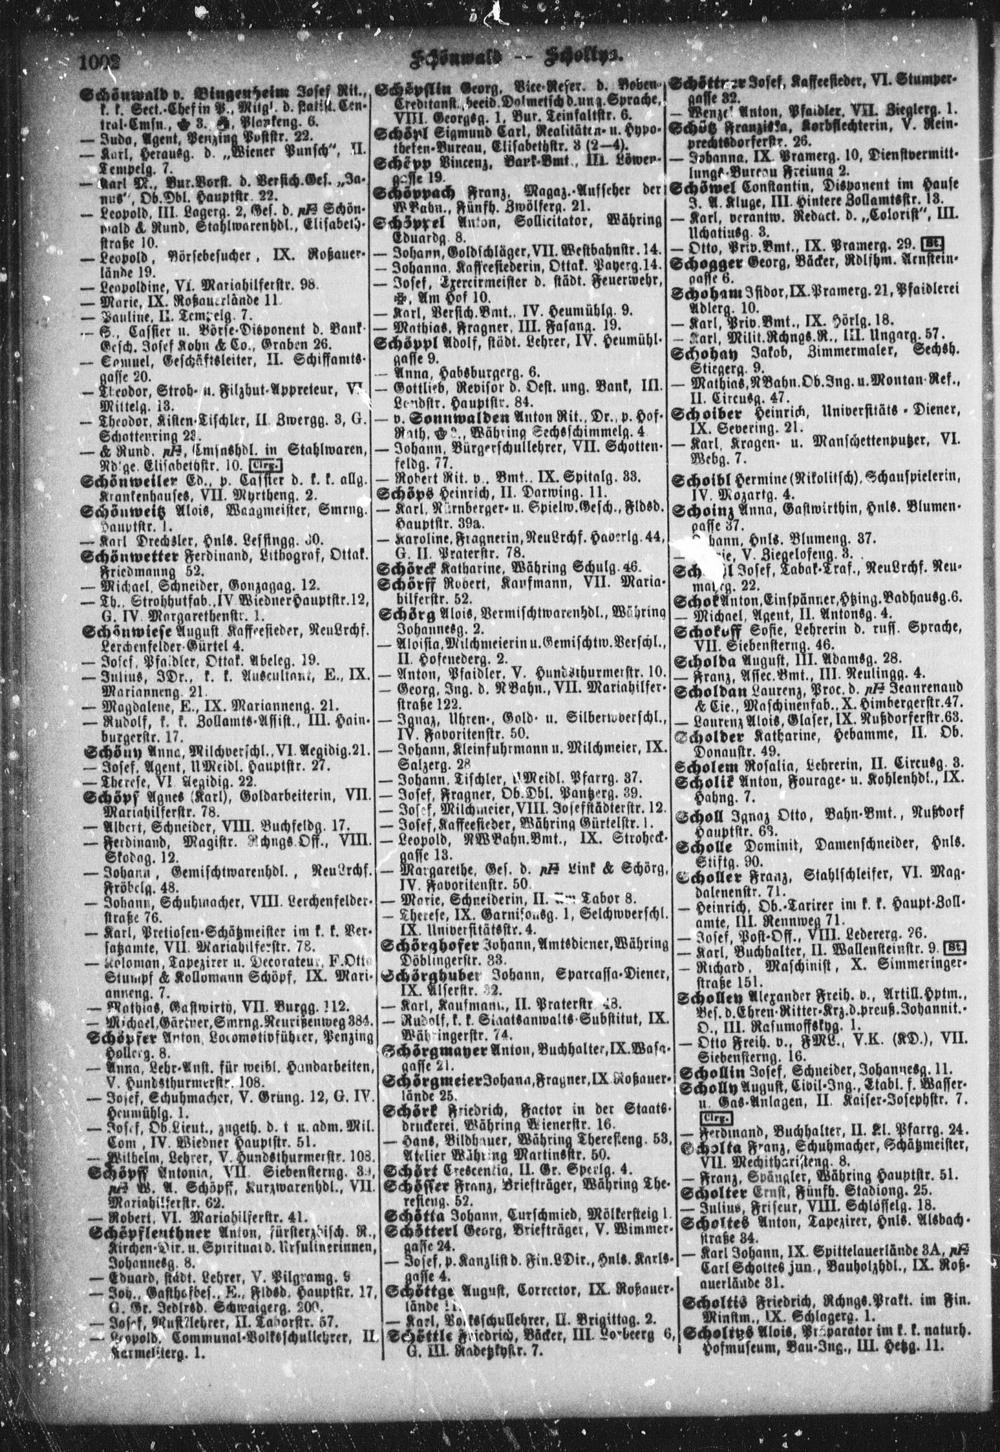 1002
Schönwald — Scholtys.
Schönwald v. Bingenheim Josef Rit.,
k. k. Sect.-Chef in P., Mitgl. d. statist. Cen-
tral-Cmsn., 3. Plankeng. 6.
— Juda, Agent, Penzing Poststr. 22.
— Karl, Herausg. d. „Wiener Punsch“, II.
Tempelg. 7.
— Karl M., Bur.Vorst. d. Versich.Ges. „Ja-
nus“, Ob.Dbl. Hauptstr. 22.
— Leopold, III. Lagerg. 2, Ges. d. Schön-
wald & Rund, Stahlwarenhdl., Elisabeth-
straße 10.
— Leopold, Börsebesucher, IX. Roßauer-
lände 19.
— Leopoldine, VI. Mariahilferstr. 98.
— Marie, IX. Roßauerlände 11.
— Pauline, II. Tempelg. 7.
— S., Cassier u. Börse-Disponent d. Bank-
Gesch. Josef Kohn & Co., Graben 26.
— Samuel, Geschäftsleiter, II. Schiffamts-
gasse 20.
— Theodor, Stroh- u. Filzhut-Appreteur, VI.
Mittelg. 13.
— Theodor, Kisten-Tischler, II. Zwergg. 3, G.
Schottenring 23.
— & Rund, Emsnshdl. in Stahlwaren,
Ndlge. Elisabethstr. 10. Clrg.
Schönweiler Ed., p. Cassier d. k. k. allg.
Krankenhauses, VII. Myrtheng. 2.
Schönweitz Alois, Waagmeister, Smrng.
Hauptstr. 1.
— Karl Drechsler, Hnls. Lessingg. 30.
Schönwetter Ferdinand, Lithograf, Ottak.
Friedmanng 52.
— Michael, Schneider, Gonzagag. 12.
— Th., Strohhutfab., IV Wiedner Hauptstr. 12,
G. IV. Margarethenstr. 1.
Schönwiese August, Kaffeesieder, NeuLrchf.
Lerchenfelder-Gürtel 4.
— Josef, Pfaidler, Ottak. Abeleg. 19.
— Julius, JDr., k. k. Auscultant, E., IX.
Marianneng. 21.
— Magdalene, E., IX. Marianneng. 21.
— Rudolf, k. k. Zollamts-Assist., III. Hain-
burgerstr. 17.
Schöny Anna, Milchverschl., VI. Aegidig. 21.
— Josef, Agent, U Meidl. Hauptstr. 27.
— Therese, VI. Aegidig. 22.
Schöpf Agnes (Karl), Goldarbeiterin, VII.
Mariahilferstr. 78.
— Albert, Schneider, VIII. Buchfeldg. 17.
— Ferdinand, Magistr. Rchngs.Off., VIII.
Skodag. 12.
— Johann, Gemischtwarenhdl., NeuLrchf.
Fröbelg. 48.
— Johann, Schuhmacher, VIII. Lerchenfelder-
straße 76.
— Karl, Pretiosen-Schätzmeister im k. k. Ver-
satzamte, VII. Mariahilferstr. 78.
— Koloman, Tapezirer u. Decorateur, F. Otto
Stumpf & Kollomann Schöpf, IX. Mari-
anneng. 7.
— Mathias, Gastwirth, VII. Burgg. 112.
— Michael, Gärtner, Smrng. Neurißenweg 384.
Schöpfer Anton, Locomotivführer, Penzing
Hollerg. 8.
— Anna, Lehr-Anst. für weibl. Handarbeiten,
V. Hundsthurmerstr. 108.
— Josef, Schuhmacher, V. Grüng. 12, G. IV.
Heumühlg. 1.
— Josef, Ob.Lieut., zugeth. d. t u. adm. Mil.
Com., IV. Wiedner Hauptstr. 51.
— Wilhelm, Lehrer, V. Hundsthurmerstr. 108.
Schöpff Antonia, VII. Siebensterng.
W. A. Schöpff, Kurzwarenhdl., VII.
Mariahilferstr. 62.
— Robert, VI. Mariahilferstr. 41.
Schöpfleuthner Anton, fürsterzbisch. R.,
Kirchen-Dir. u. Spiritual d. Ursulinerinnen,
Johannesg. 8.
— Eduard, städt. Lehrer, V. Pilgramg. 9
— Joh., Gasthofbes., E., Fldsd. Hauptstr. 17,
G. Gr. Jedlrsd. Schwaigerg. 200.
— Josef, Musiklehrer, II. Taborstr. 57.
— Leopold, Communal-Volksschullehrer, II.
Karmeliterg. 1.
Schöpflin Georg, Vice-Kefer. d. Boden-
Creditanst., beeid. Dolmetsch d. ung. Sprache,
VIII. Georgsg. 1, Bur. Teinfaltstr. 6.
Schöpl Sigmund Carl, Realitäten- u. Hypo-
theken-Bureau, Elisabethstr. 3 (2—4).
Schöpp Vincenz, Bank-Bmt., III. Löwen-
gasse 19.
Schöppach Franz, Magaz.-Aufseher der
WBahn, Fünfh. Zwölferg. 21.
Schöppel Anton, Sollicitator, Währing
Eduardg. 8.
— Johann, Goldschläger, VII. Westbahnstr. 14.
— Johanna, Kaffeesiederin, Ottak. Payerg. 14.
— Josef, Exercirmeister d. städt. Feuerwehr,
Am Hof 10.
— Karl, Versich.Bmt., IV. Heumühlg. 9.
— Mathias, Fragner, III. Fasang. 19.
Schöppl Adolf, städt. Lehrer, IV. Heumühl-
gasse 9.
— Anna, Habsburgerg. 6.
— Gottlieb, Revisor d. Oest. ung. Bank, III.
Landstr. Hauptstr. 84.
— v. Sonnwalden Anton Rit., Dr., p. Hof-
Rath, Währing Sechsschimmelg. 4
— Johann, Bürgerschullehrer, VII. Schotten-
feldg. 77.
— Robert Rit. v., Bmt., IX. Spitalg. 33.
Schöps Heinrich, II. Darwing. 11.
— Karl, Nürnberger- u. Spielw.Gesch., Fldsd.
Hauptstr. 39a.
— Karoline, Fragnerin, NeuLrchf. Haberlg. 44,
G. II. Praterstr. 78.
Schörck Katharine, Währing Schulg. 46.
Schörff Robert, Kaufmann, VII. Maria-
hilferstr. 52.
Schörg Alois, Vermischtwarenhdl., Währing
Johannesg. 2.
— Aloisia, Milchmeierin u. Gemischtw. Verschl.,
II. Hofenederg. 2.
— Anton, Pfaidler, V. Hundsthurmerstr. 10.
— Georg, Ing. d. NBahn., VII. Mariahilfer-
straße 122.
— Ignaz, Uhren-, Gold- u. Silberverschl.,
IV. Favoritenstr. 50.
— Johann, Kleinfuhrmann u. Milchmeier, IX.
Salzerg. 28
— Johann, Tischler, UMeidl. Pfarrg. 37.
— Josef, Fragner, Ob.Dbl. Pantzerg. 39.
— Josef, Milchmeier, VIII. Josefstädterstr. 12.
— Josef, Kaffeesieder, Währing Gürtelstr. 1.
— Leopold, NWBahn.Bmt., IX. Stroheck-
gasse 13.
— Margarethe, Ges. d. Link & Schörg,
IV. Favoritenstr. 50.
— Marie, Schneiderin, II. Am Tabor 8.
— Therese, IX. Garnisonsg. 1, Selchwverschl.
IX. Universitätsstr. 4.
Schörghofer Johann, Amtsdiener, Währing
Döblingerstr. 33.
Schörghuber Johann, Sparcassa-Diener,
IX. Alserstr. 32.
— Karl, Kaufmann, II. Praterstr. 48.
— Rudolf, k. k. Staatsanwalts-Substitut, IX.
Währingerstr. 74.
Schörgmayer Anton, Buchhalter, IX. Wasa-
gasse 21.
Schörgmeier Johana, Fragner, IX Roßauer-
lände 25.
Schörk Friedrich, Factor in der Staats-
druckerei, Währing Wienerstr. 16.
— Hans, Bildhauer, Währing Theresieng. 53,
Atelier Währing Martinsstr. 50.
Schört Crescentia, II. Gr. Sperlg. 4.
Schösser Franz, Briefträger, Währing The-
resieng. 52.
Schötta Johann, Curschmied, Mölkersteig 1.
Schötterl Georg, Briefträger, V. Wimmer-
gasse 24.
— Josef, p. Kanzlist d. Fin.LDir., Hnls. Karls-
gasse 4.
Schöttge August, Corrector, IX. Roßauer-
lände 11.
— Karl, Volksschullehrer, II. Brigittag. 2.
Schöttle Friedrich, Bäcker, III. Lorbeerg 6,
G. III. Radetzkystr. 7.
Schöttner Josef, Kaffeesieder, VI. Stumper-
gasse 32.
— Wenzel Anton, Pfaidler, VII. Zieglerg. 1.
Schötz Franziska, Korbflechterin, V. Rein-
prechtsdorferstr. 26.
— Johanna, IX. Pramerg. 10, Dienstvermitt-
lungs-Bureau Freiung 2.
Schöwel Constantin, Disponent im Hause
J. A. Kluge, III. Hintere Zollamtsstr. 13.
— Karl, verantw. Redact. d. „Colorist“, III.
Uchatiusg. 3.
— Otto, Priv.Bmt., IX. Pramerg. 29. St.
Schogger Georg, Bäcker, Rdlfhm. Arnstein-
gasse 6.
Schoham Isidor, IX. Pramerg. 21, Pfaidlerei
Adlerg. 10.
— Karl, Priv.Bmt., IX. Hörlg. 18.
— Karl, Milit.Rchngs.R., III. Ungarg. 57.
Schohay Jakob, Zimmermaler, Sechsh.
Stiegerg. 9.
— Mathias, NBahn.Ob.Ing. u. Montan-Ref.,
II. Circusg. 47.
Schoiber Heinrich, Universitäts-Diener,
IX. Severing. 21.
— Karl, Kragen- u. Manschettenputzer, VI.
Webg. 7.
Schoibl Hermine (Nikolitsch), Schauspielerin,
IV. Mozartg. 4.
Schoinz Anna, Gastwirthin, Hnls. Blumen-
gasse 37.
— Johann, Hnls. Blumeng. 37.
V. Ziegelofeng. 3.
Josef, Tabak-Traf., NeuLrchf. Neu-
mayrg. 22.
Schok Anton, Einspänner, Htzing. Badhausg. 6.
— Michael, Agent, II. Antonsg. 4.
Schokoff Sofie, Lehrerin d. russ. Sprache,
VII. Siebensterng. 46.
Scholda August, III. Adamsg. 28.
— Franz, Assec.Bmt., III. Reulingg. 4.
Scholdan Laurenz, Proc. d. Jeanrenaud
& Cie., Maschinenfab., X. Himbergerstr. 47.
— Laurenz Alois, Glaser, IX. Nußdorferstr. 63.
Scholder Katharine, Hebamme, II. Ob.
Donaustr. 49.
Scholem Rosalia, Lehrerin, II. Circusg. 3.
Scholik Anton, Fourage- u. Kohlenhdl., IX.
Hahng. 7.
Scholl Ignaz Otto, Bahn-Bmt., Nußdorf
Hauptstr. 63.
Scholle Dominik, Damenschneider, Hnls.
Stiftg. 90.
Scholler Franz, Stahlschleifer, VI. Mag-
dalenenstr. 71.
— Heinrich, Ob.-Tarirer im k. k. Haupt-Zoll-
amte, III. Rennweg 71.
— Josef, Post-Off., VIII. Ledererg. 26.
— Karl, Buchhalter, II. Wallensteinstr. 9. St.
— Richard, Maschinist, X. Simmeringer-
straße 151.
Scholley Alexander Freih. v., Artill.Hptm.,
Bes. d. Ehren-Ritter-Krz. d. preuß. Johannit.-
O., III. Rasumoffskyg. 1.
— Otto Freih. v., FML., V.K. (KD.), VII.
Siebensterng. 16.
Schollin Josef, Schneider, Johannesg. 11.
Scholly August, Civil-Ing., Etabl. f. Wasser-
u. Gas-Anlagen, II. Kaiser-Josephstr. 7.
Clrg.
— Ferdinand, Buchhalter, II. Kl. Pfarrg. 24.
Scholta Franz, Schuhmacher, Schätzmeister,
VII. Mechitharisteng. 8.
— Franz, Spängler, Währing Hauptstr. 51.
Scholter Ernst, Fünfh. Stadiong. 25.
— Julius, Friseur, VIII. Schlösselg. 18.
Scholtes Anton, Tapezirer, Hnls. Alsbach-
straße 34.
— Karl Johann, IX. Spittelauerlände 3A,
Carl Scholtes jun., Bauholzhdl., IX. Roß-
auerlände 31.
Scholtis Friedrich, Rchngs.Prakt. im Fin.
Minstm., IX. Schlagerg. 1.
Scholtys Alois, Präparator im k. k. naturh.
Hofmuseum, Bau-Ing., III. Hetzg. 11.